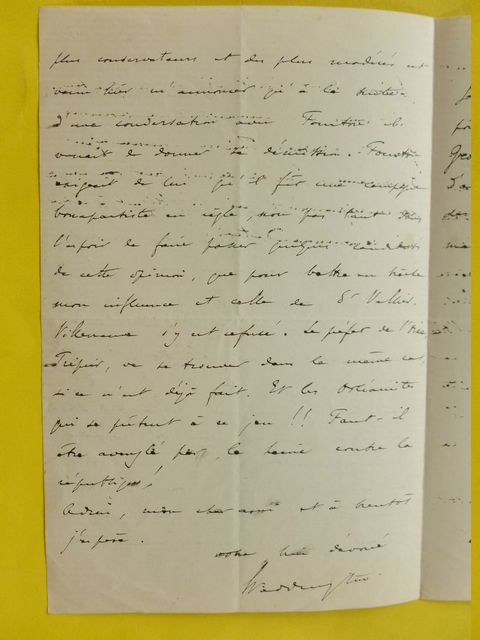 plus conservateurs et des plus modérés est
venu hier m'annoncer qu'à la suite
d'une conversation avec Fourtou il
venait de donner sa démission. Fourtou
exigeait de lui qu'il fît une campagne
bonapartiste en règle, non pas tant dans
l'espoir de faire passer quelques candidats
de cette opinion, que pour battre en brèche
mon influence et celle de St Vallier.
Villeneuve s'y est refusé. Le préfet de l'Oise
Tripier, va se trouver dans le même cas,
si ce n'est déjà fait. Et les Orléanistes
qui se prêtent à ce jeu !! Faut-il
être aveuglé par la haine contre la
république !
Adieu, mon cher ami et à bientôt
j'espère.
votre bien dévoué
Waddington